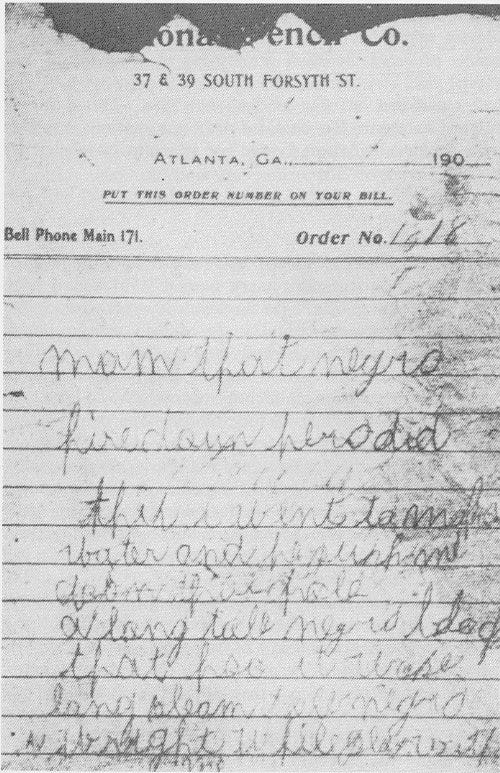 Co.
37 & 39 SOUTH FORSYTH ST.
ATLANTA, GA., 190
PUT THIS ORDER NUMBER ON YOUR BILL.
Bell Phone Main 171. Order No.
mam that negro
hire doun here did
this i went to make
water and he push me
doun that hole
a long tall negro black
that hoo it wase
long sleam tall negro
i wright while play with
me